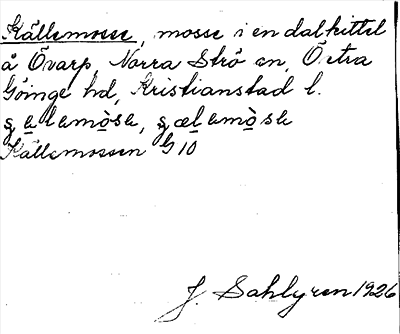 Källemosse, mosse i en dalkittel
å Övarp, Norra Strö sn, Östra
Göinge hd, Kristianstad l.
Källemossen G 10
J. Sahlgren 1926